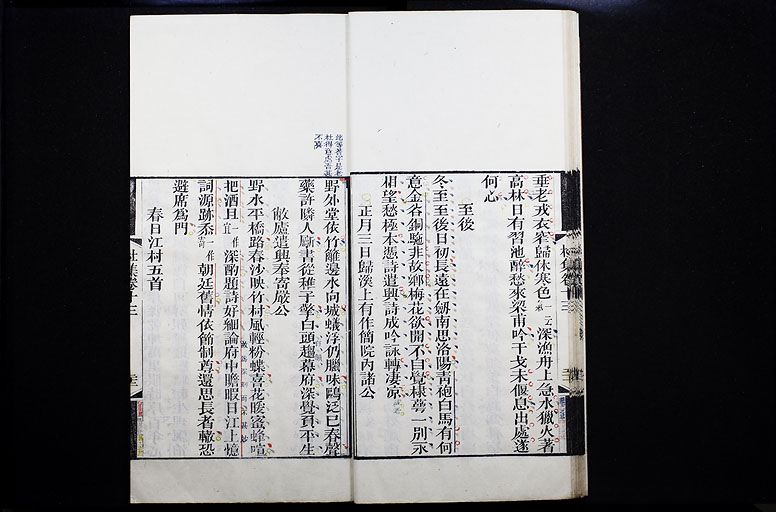 垂老戎衣窄歸休寒色深漁舟上急水獵火著
高林日有習池醉愁來梁甫吟干戈未偃息出處遂
何心
至後
冬至至後日初長遠在劒南思洛陽靑袍白馬有何
意金谷銅駝非故鄉梅花欲開不自覺棣萼一別永
相望愁極本憑詩遣興詩成吟詠轉凄涼
正月三日歸溪上有作簡院內諸公
野外堂依竹籬邊水向城蟻浮仍臘味鷗泛已春聲
藥許鄰人斸書從稚子擎白頭趨幕府深覺負平生
敝廬遣興奉寄嚴公
野水平橋路春沙映竹村風輕粉蝶喜花暖蜜蜂喧
把酒且一作宜深酌題詩好細論府中瞻暇日江上憶
詞源跡忝一作寄朝廷舊情依節制尊還思長者轍恐
避席爲門
春日江村五首
杜集卷十三